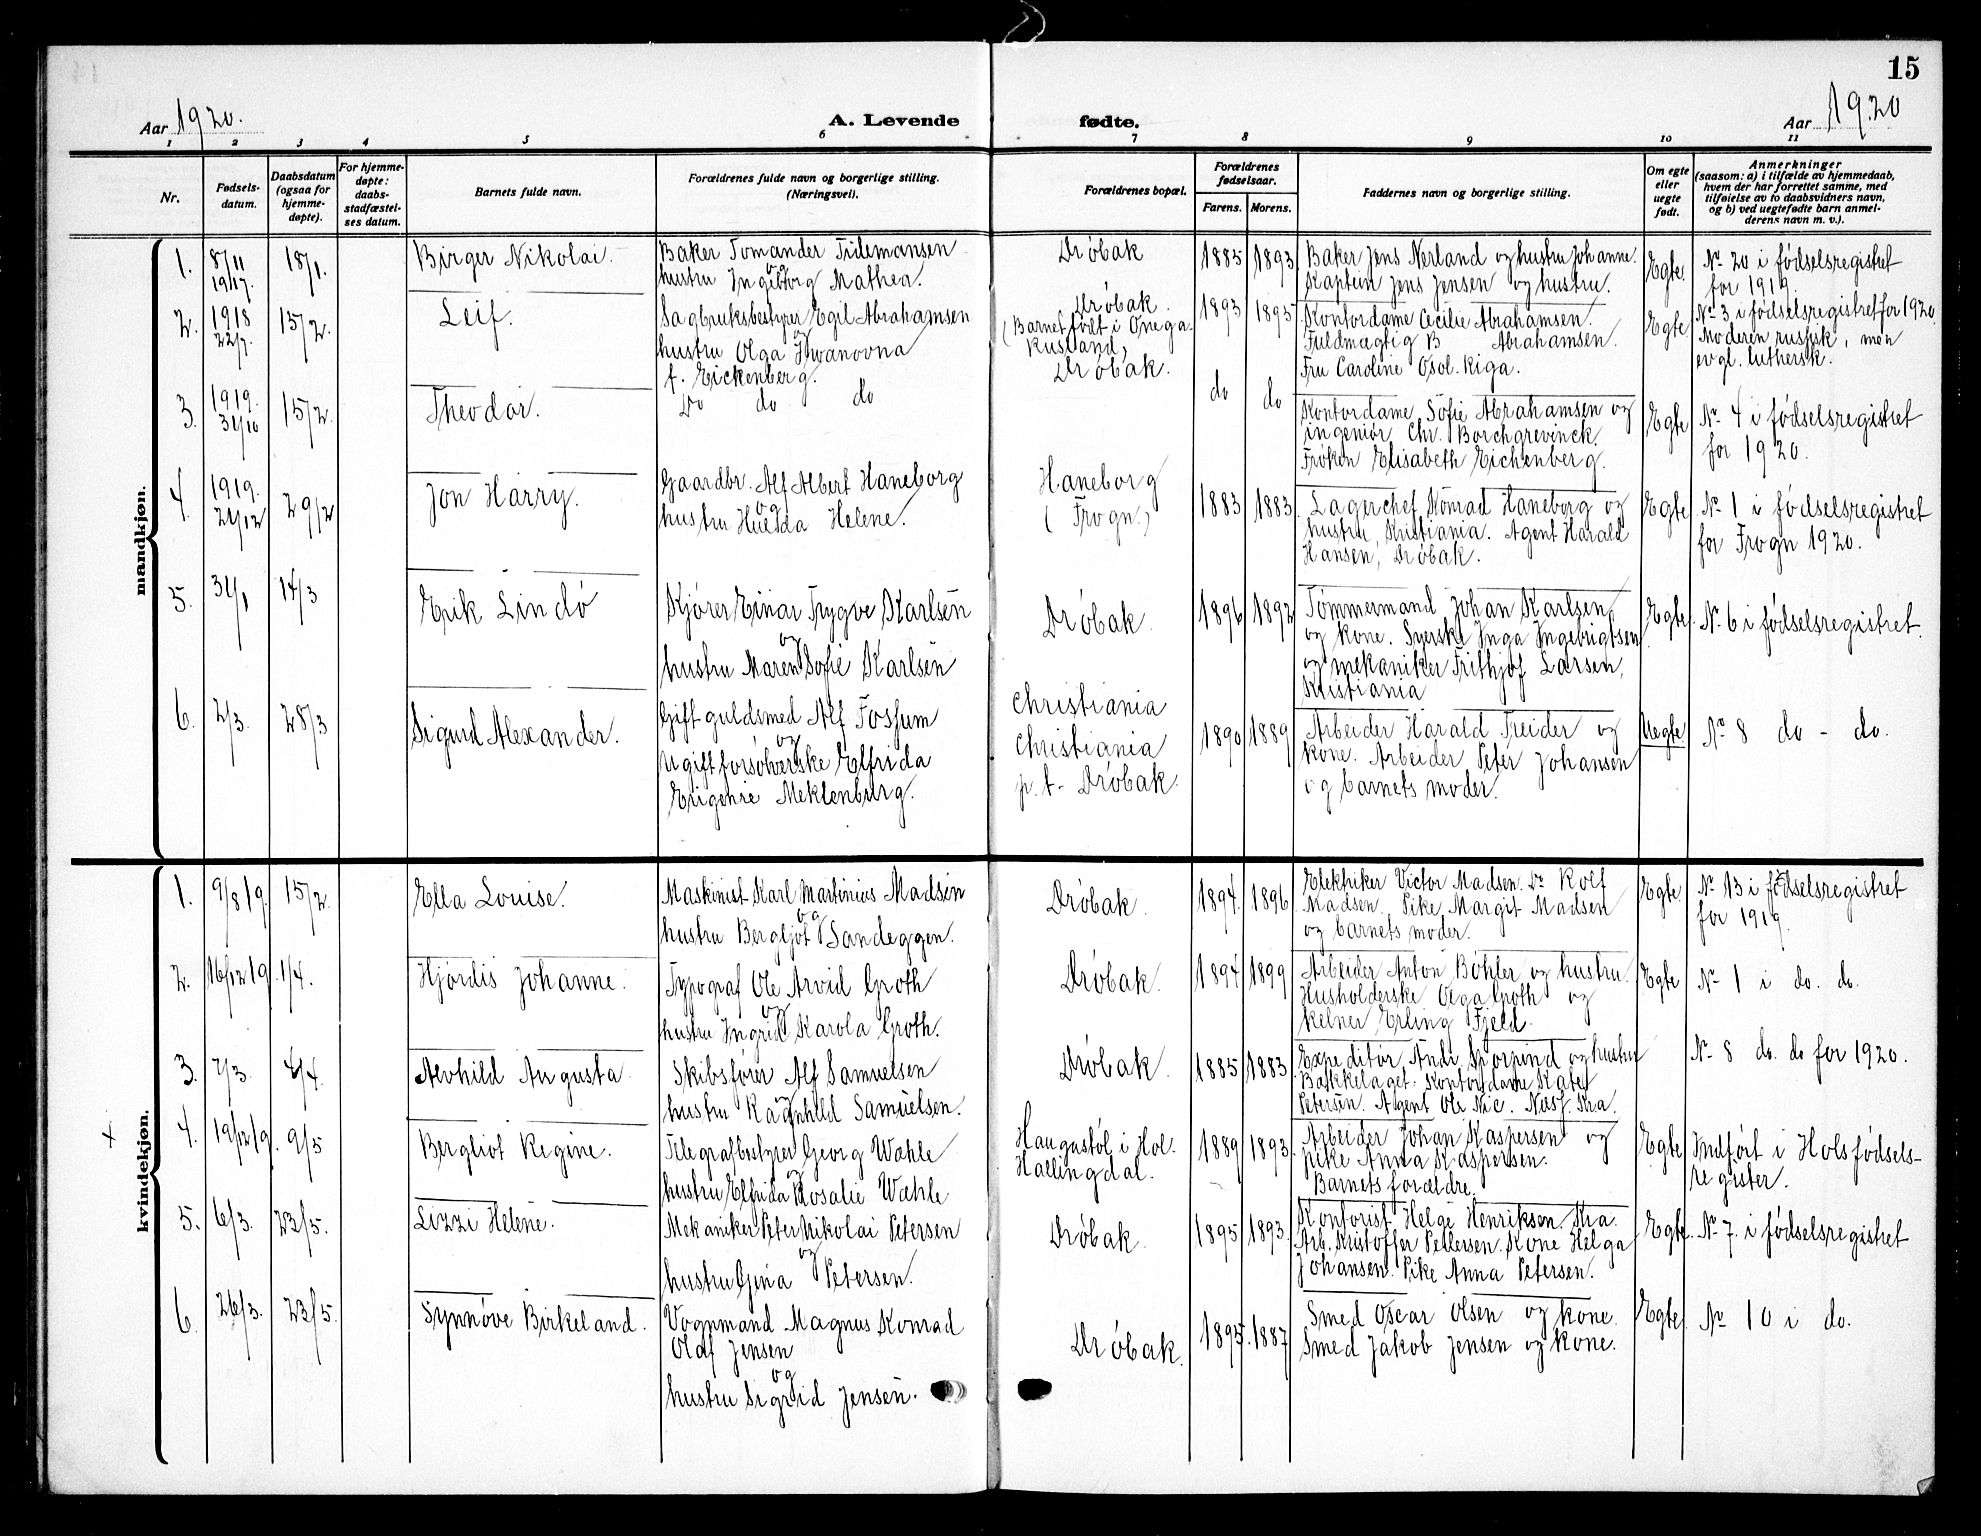 15
Aar 1920.
A. Levende
fødte.
Aar 1920
1 2 3 4 5 6 7 8 9 10 11
Nr.
Fødsels-
datum.
Daabsdatum
(ogsaa for
hjemme-
døpte).
For hjemme-
døpte:
daabs-
stadfæstel-
ses datum.
Barnets fulde navn.
Forældrenes fulde navn og borgerlige stilling.
(Næringsvei).
Forældrenes bopæl.
Forældrenes
fødselsaar.
Farens. Morens.
Faddernes navn og borgerlige stilling.
Om egte
eller
uegte
født.
Anmerkninger
(saasom: a) i tilfælde av hjemmedaab,
hvem der har forrettet samme, med
tilføielse av to daabsvidners navn,
og b) ved uegtefødte barn anmel-
derens navn m. v.).
mandkjøn.
1. 8/11 19/17. 18/1. Birger Nikolai.
Baker Tomander Tidemansen
og
hustru Ingeborg Mathea.
Drøbak
1885 1893
Baker Jens Nerland og hustru Johanne.
Kaptein Jens Jensen og hustru.
Egte.
No 20 i fødselsregistret
for 1919.
2. 1918 22/7. 15/2. Leif.
Sagbruksbestyrer Egil Abrahamsen
og
hustru Olga Iwanovna
f. Eickenberg.
Drøbak.
(Barnet født i Onega.
Rusland,
Drøbak.
1893 1895
Kontordame Cecilie Abrahamsen.
Fuldmægtig B Abrahamsen.
Fru Caroline Osol. Riga.
Egte.
No 3 i fødselsregistret for 1920.
Moderen russisk, men
evgl. luthersk.
3. 1919. 31/10 15/2. Theodor.
Do do do
do do
Kontordame Sofie Abrahamsen og
ingeniør Chr. Borchgrevinck.
Frøken Elisabeth Eichenberg.
Egte
No 4 i fødselsregistret
for 1920.
4. 1919. 21/12 29/2 Jon Harry.
Gaardbr. Alf Albert Haneborg
og
hustru Hulda Helene.
Haneborg
(Frogn.)
1883 1883.
Lagerchef Konrad Haneborg og
hustru, Kristiania. Agent Harald
Hansen, Drøbak.
Egte
No 1 i fødselsregistret
for Frogn 1920.
5. 31/1 14/3 Erik Lindø
Kjører Einar Trygve Karlsen
og
hustru Maren Sofie Karlsen
Drøbak.
1896 1892
Tømmermand Johan Karlsen,
og kone. Syerske Inga Ingebrigtsen
og mekaniker Frithjof Larsen,
Kristiania
Egte.
No 6 i fødselsregistret.
6. 2/3. 28/3 Sigurd Alexander.
Gift guldsmed Alf Fossum
og
Ugift forsølverske Elfrida
Eugenie Meklenburg.
Christiania
Christiania
p. t. Drøbak.
1890 1889
Arbeider Harald Treider og
kone. Arbeider Peter Johansen
og barnets moder.
Uegte
No 8 do - do.
kvindekjøn.
1. 9/8 19. 15/2. Ella Louise.
Maskinist Karl Martinius Madsen
og
hustru Bergljot Sandeggen.
Drøbak.
1894. 1896
Elektriker Victor Madsen. Do Rolf
Madsen. Pike Margit Madsen
og barnets moder.
Egte.
No 13 i fødselsregistret
for 1919.
2. 16/12 19. 1/4. Hjørdis Johanne.
Typograf Ole Arvid Groth
og
hustru Ingrid Karola Groth.
Drøbak.
1894 1899
Arbeider Anton Bøhler og hustru.
Husholderske Olga Groth og
kelner Erling Fjeld.
Egte
No 1 i do. do.
3. 7/3. 4/4. Alvhild Augusta.
Skibsfører Alf Samuelsen
og
hustru Ragnhild Samuelsen.
Drøbak.
1885 1883.
Expeditør og hustru
Bækkelaget. Kontordame Kate
Petersen. Agent Ole Nic. Næss Kra.
No 8 do. do for 1920.
+
4. 19/12 19. 9/5 Bergliot Regine.
Telegrafbestyrer Georg Wæhle
og
hustru Elfrida Rosalie Wæhle
Haugastøl i Hol.
Hallingdal.
1889 1893.
Arbeider Johan Kaspersen og
pike Anna Kaspersen.
Barnets forældre.
Egte
Indført i Hols fødsels-
register.
5. 6/3. 23/5. Lizzi Helene.
Mekaniker Peter Nikolai Petersen
og
hustru Gina Petersen.
Drøbak.
1895 1893.
Kontorist Helge Henriksen Kra.
Arb. Kristoffer Pettersen. Kone Helga
Johansen. Pike Anna Petersen.
Egte.
No 7. i fødselsregistret
6. 26/3. 23/5. Synnøve Birkeland.
Vognmand Magnus Konrad
Olaf Jensen
og
hustru Sigrid Jensen.
Drøbak.
1895. 1887
Smed Oscar Olsen og kone.
Smed Jakob Jensen og kone.
Egte
No 10 i do.